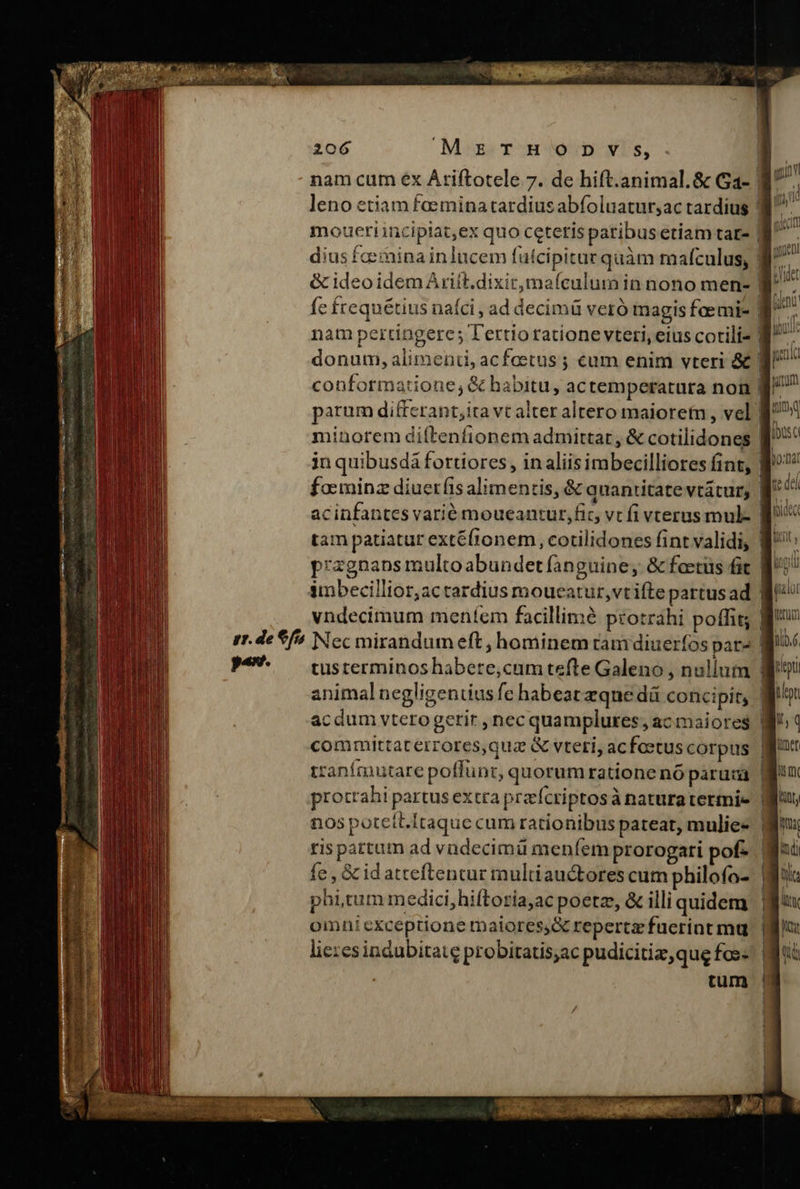 206 METHODVS,
nam cum ex Ariſtotele 7. de hiſt.animal.& Ga-
leno etiam fœmina tardius abſoluatur,ac tardius
moueri incipiat,ex quo cęteris paribus etiam tar-
dius fœmina in lucem ſuſcipitur quàm maſculus,
& ideo idem Ariſt.dixit,maſculum in nono men-
ſe frequẽtius naſci, ad decimũ verò magis fœmi-
nam pertingere; Tertio ratione vteri, eius cotili-
donum, alimenti, ac fœtus; cum enim vteri &
conformatione, & habitu, ac temperatura non
parum differant,ita vt alter altero maiorem, vel
minorem diſtenſionem admittat, & cotilidones
in quibusdã fortiores, in aliis imbecilliores ſint,
fœminæ diuerſis alimentis, & quantitate vtãtur,
ac infantes variè moueantur,fit, vt ſi vterus mul-
tam patiatur extẽſionem, cotilidones ſint validi,
prægnans multo abundet ſanguine, & fœtus ſit
imbecillior,ac tardius moueatur,vt iſte partus ad
vndecimum menſem facillimè protrahi poſſit;
Nec mirandum eſt, hominem tam diuerſos par-
tus terminos habere,cum teſte Galeno, nullum
animal negligentius ſe habeat æque dũ concipit,
ac dum vtero gerit, nec quamplures, ac maiores
committat errores,quæ & vteri, ac fœtus corpus
tranſmutare poſſunt, quorum ratione nõ parum
protrahi partus extra præſcriptos à natura termi-
nos poteſt.Itaque cum rationibus pateat, mulie-
ris partum ad vndecimũ menſem prorogari poſ-
ſe, & id atteſtentur multi auctores cum philoſo-
phi,tum medici,hiſtoria,ac poetæ, & illi quidem
omni exceptione maiores,& repertæ fuerint mu
lieres indubitatę probitatis,ac pudicitiæ,quę fœ-
tum